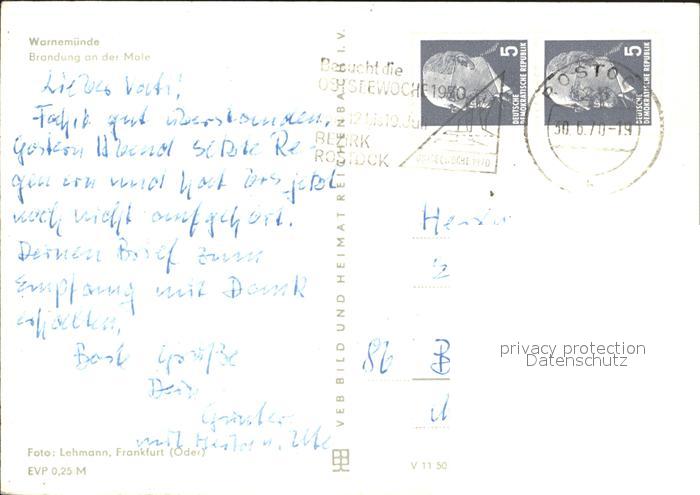 Warnemünde
Brandung an der Mole
Lieber Vati!
Fahrt gut überstanden.
Gestern Abend setzte Re-
gen ein und hat bis jetzt
noch nicht aufgehört.
Deinen Brief zum
Empfang mit Dank
erhalten.
Beste Grüße
Dein
Günter
mit Heiter u. Ute
Foto: Lehmann, Frankfurt (Oder)
EVP 0,25 M
VEB BILD UND HEIMAT REICHENBACH I. V.
Besucht die
OSTSEEWOCHE 1970
12. bis 19. Juli
BEZIRK
ROSTOCK
OSTSEEWOCHE 1970
5
DEUTSCHE
DEMOKRATISCHE REPUBLIK
5
DEUTSCHE
DEMOKRATISCHE REPUBLIK
ROSTO
30.6.70-19
Herrn
86 B
privacy protection
Datenschutz
V 11 50